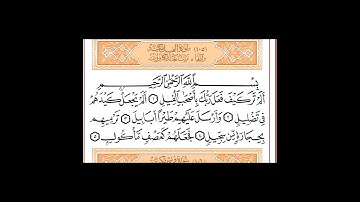 (١٠٥) سورة الفيل مكية
بِسْمِ ٱللَّهِ ٱلرَّحْمَٰنِ ٱلرَّحِيمِ
أَلَمْ تَرَ كَيْفَ فَعَلَ رَبُّكَ بِأَصْحَٰبِ ٱلْفِيلِ ١ أَلَمْ يَجْعَلْ كَيْدَهُمْ
فِى تَضْلِيلٍ ٢ وَأَرْسَلَ عَلَيْهِمْ طَيْرًا أَبَابِيلَ ٣ تَرْمِيهِم
بِحِجَارَةٍ مِّن سِجِّيلٍ ٤ فَجَعَلَهُمْ كَعَصْفٍ مَّأْكُولٍ ٥